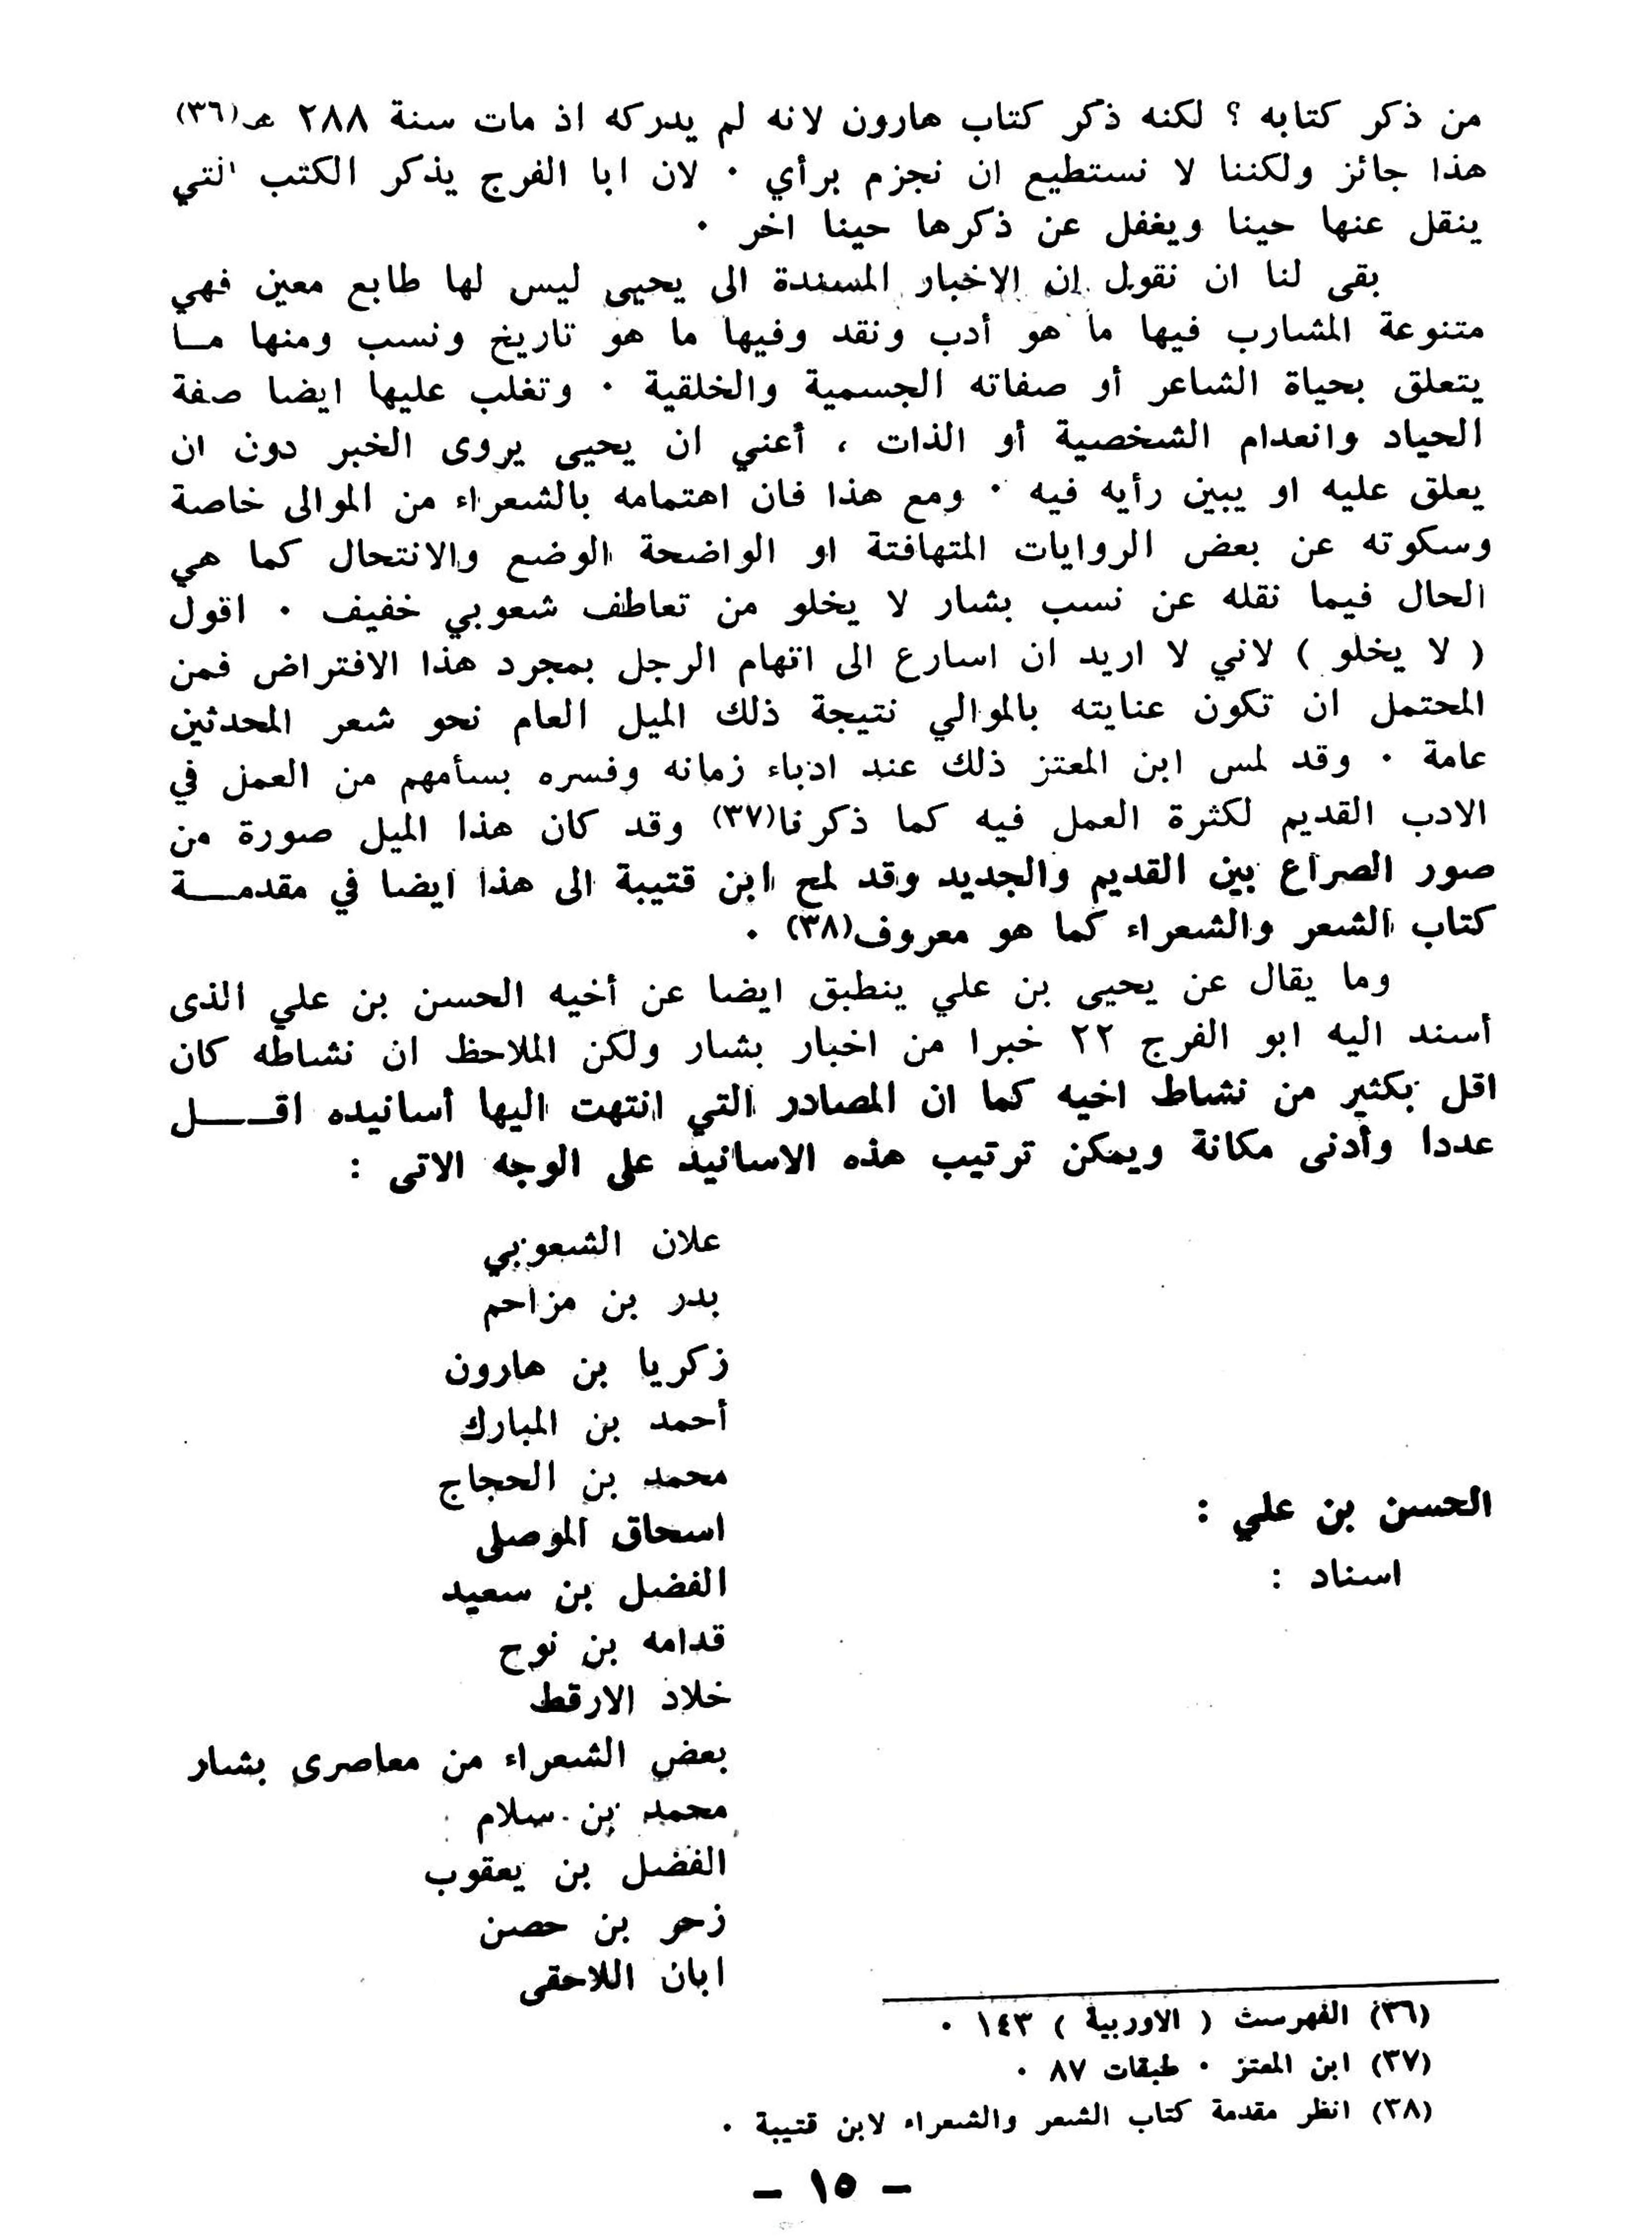 من ذكر كتابه ؟ لكنه ذكر كتاب هارون لانه لم يدركه اذ مات سنة ٢٨٨ هـ(٣٦)
هذا جائز ولكننا لا نستطيع ان نجزم برأي ٠ لان ابا الفرج يذكر الكتب التي
ينقل عنها حينا ويغفل عن ذكرها حينا اخر ٠
بقى لنا ان نقول إن الاخبار المسندة الى يحيى ليس لها طابع معين فهي
متنوعة المشارب فيها ما هو أدب ونقد وفيها ما هو تاريخ ونسب ومنها مـا
يتعلق بحياة الشاعر أو صفاته الجسمية والخلقية ٠ وتغلب عليها ايضا صفة
الحياد وانعدام الشخصية أو الذات ، أعني ان يحيى يروى الخبر دون ان
يعلق عليه او يبين رأيه فيه ٠ ومع هذا فان اهتمامه بالشعراء من الموالى خاصة
وسكوته عن بعض الروايات المتهافتة او الواضحة الوضع والانتحال كما هي
الحال فيما نقله عن نسب بشار لا يخلو من تعاطف شعوبي خفيف ٠ اقول
( لا يخلو ) لاني لا اريد ان اسارع الى اتهام الرجل بمجرد هذا الافتراض فمن
المحتمل ان تكون عنايته بالموالي نتيجة ذلك الميل العام نحو شعر المحدثين
عامة ٠ وقد لمس ابن المعتز ذلك عند ادباء زمانه وفسره بسأمهم من العمل في
الادب القديم لكثرة العمل فيه كما ذكرنا(٣٧) وقد كان هذا الميل صورة من
صور الصراع بين القديم والجديد وقد لمح ابن قتيبة الى هذا ايضا في مقدمـــة
كتاب الشعر والشعراء كما هو معروف(٣٨) ٠
وما يقال عن يحيى بن علي ينطبق ايضا عن أخيه الحسن بن علي الذى
أسند اليه ابو الفرج ٢٢ خبرا من اخبار بشار ولكن الملاحظ ان نشاطه كان
اقل بكثير من نشاط اخيه كما ان المصادر التي انتهت اليها أسانيده اقـــل
عددا وأدنى مكانة ويمكن ترتيب هذه الاسانيد على الوجه الاتى :
علان الشعوبي
بدر بن مزاحم
زكريا بن هارون
أحمد بن المبارك
محمد بن الحجاج
الحسن بن علي :
اسحاق الموصلى
اسناد :
الفضل بن سعيد
قدامه بن نوح
خلاد الارقط
بعض الشعراء من معاصرى بشار
محمد بن سلام
الفضل بن يعقوب
زحر بن حصن
ابان اللاحقى
(٣٦) الفهرست ( الاوربية ) ١٤٣ ٠
(٣٧) ابن المعتز ٠ طبقات ٨٧ ٠
(٣٨) انظر مقدمة كتاب الشعر والشعراء لابن قتيبة ٠
– ١٥ –